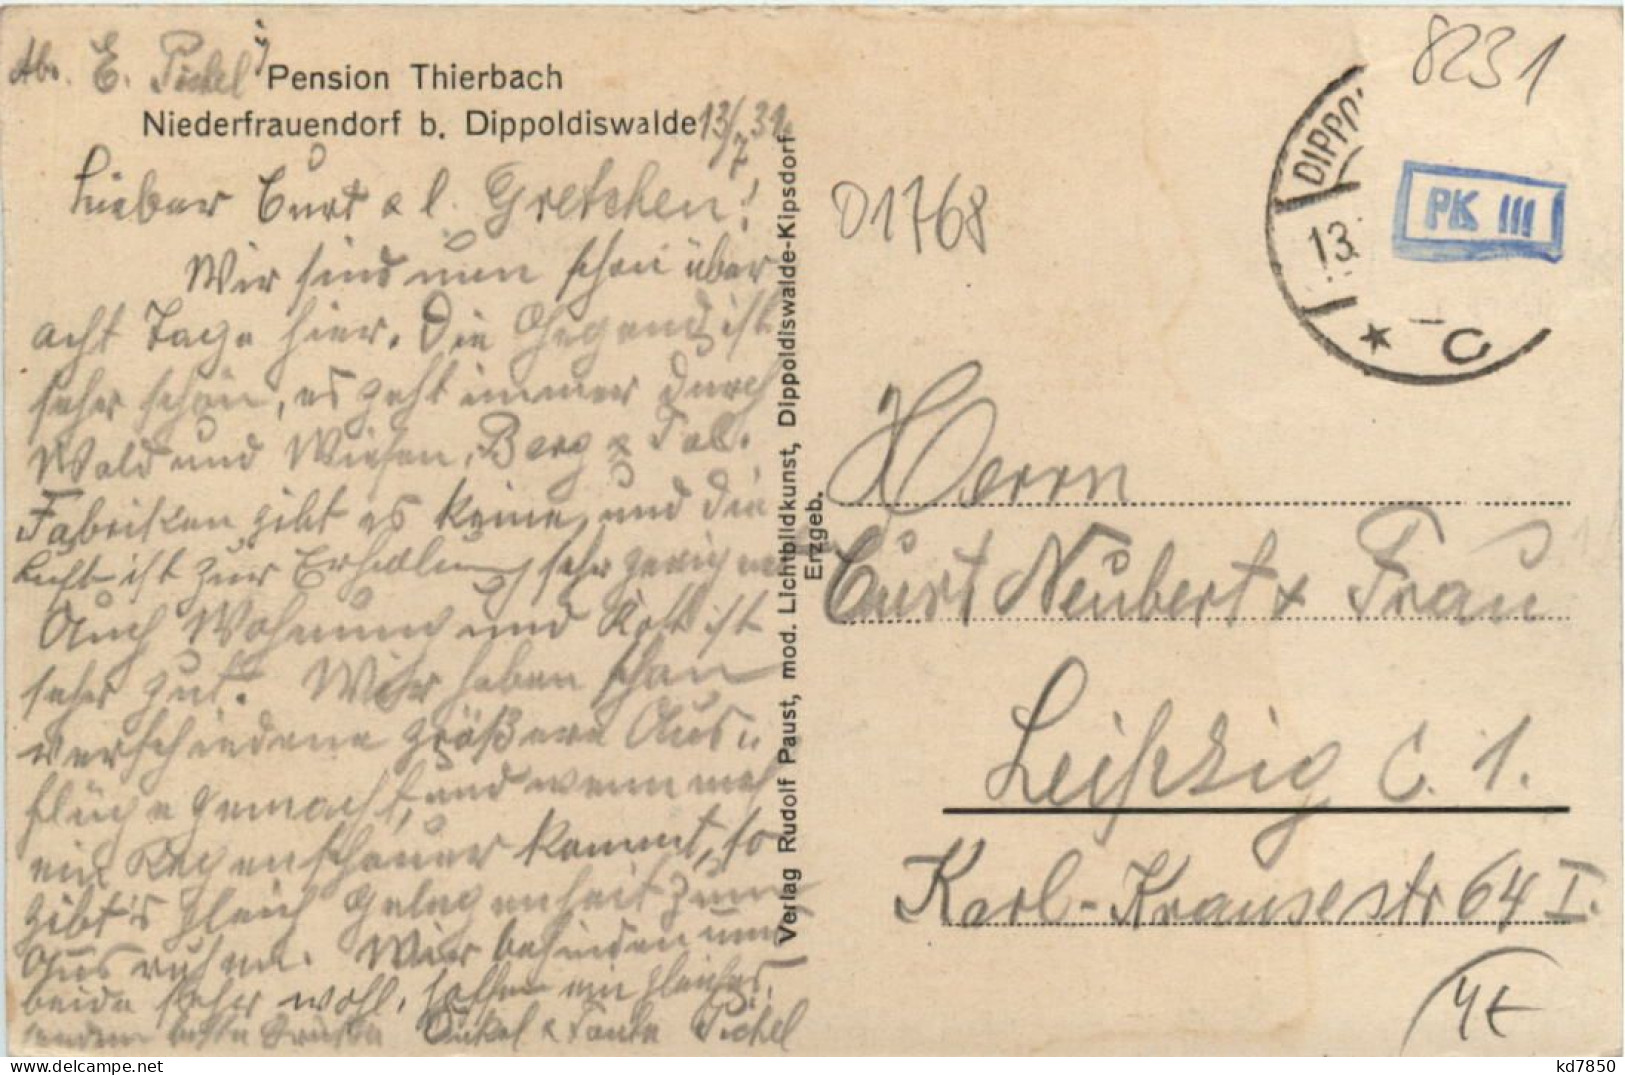 Abs. E. Pickel i/
Pension Thierbach
Niederfrauendorf b. Dippoldiswalde 13/7 31.
Lieber Curt & l. Gretchen!
Wir sind nun schon über
acht Tage hier. Die Gegend ist
sehr schön, es geht immer durch
Wald und Wiesen, Berg & Tal.
Fabriken gibt es keine, und die
Luft ist zur Erholung sehr
Auch Wohnung und Kost ist
sehr gut. Wir haben schon
verschiedene größere Aus=
flüge gemacht, und wenn mal
ein Regenschauer kommt, so
gibt's gleich Gelegenheit zum
Ausruhen. Wir befinden uns
beide sehr wohl, hoffen ein gleiches,
senden beste Grüße Onkel & Tante Pickel
Verlag Rudolf Paust, mod. Lichtbildkunst, Dippoldiswalde-Kipsdorf
Erzgeb.
8231
01768
DIPPO
13.
PK III
C
Herrn
Curt Neubert & Frau
Leipzig C. 1.
Karl-Krausestr 64 I.
4€
kd7850